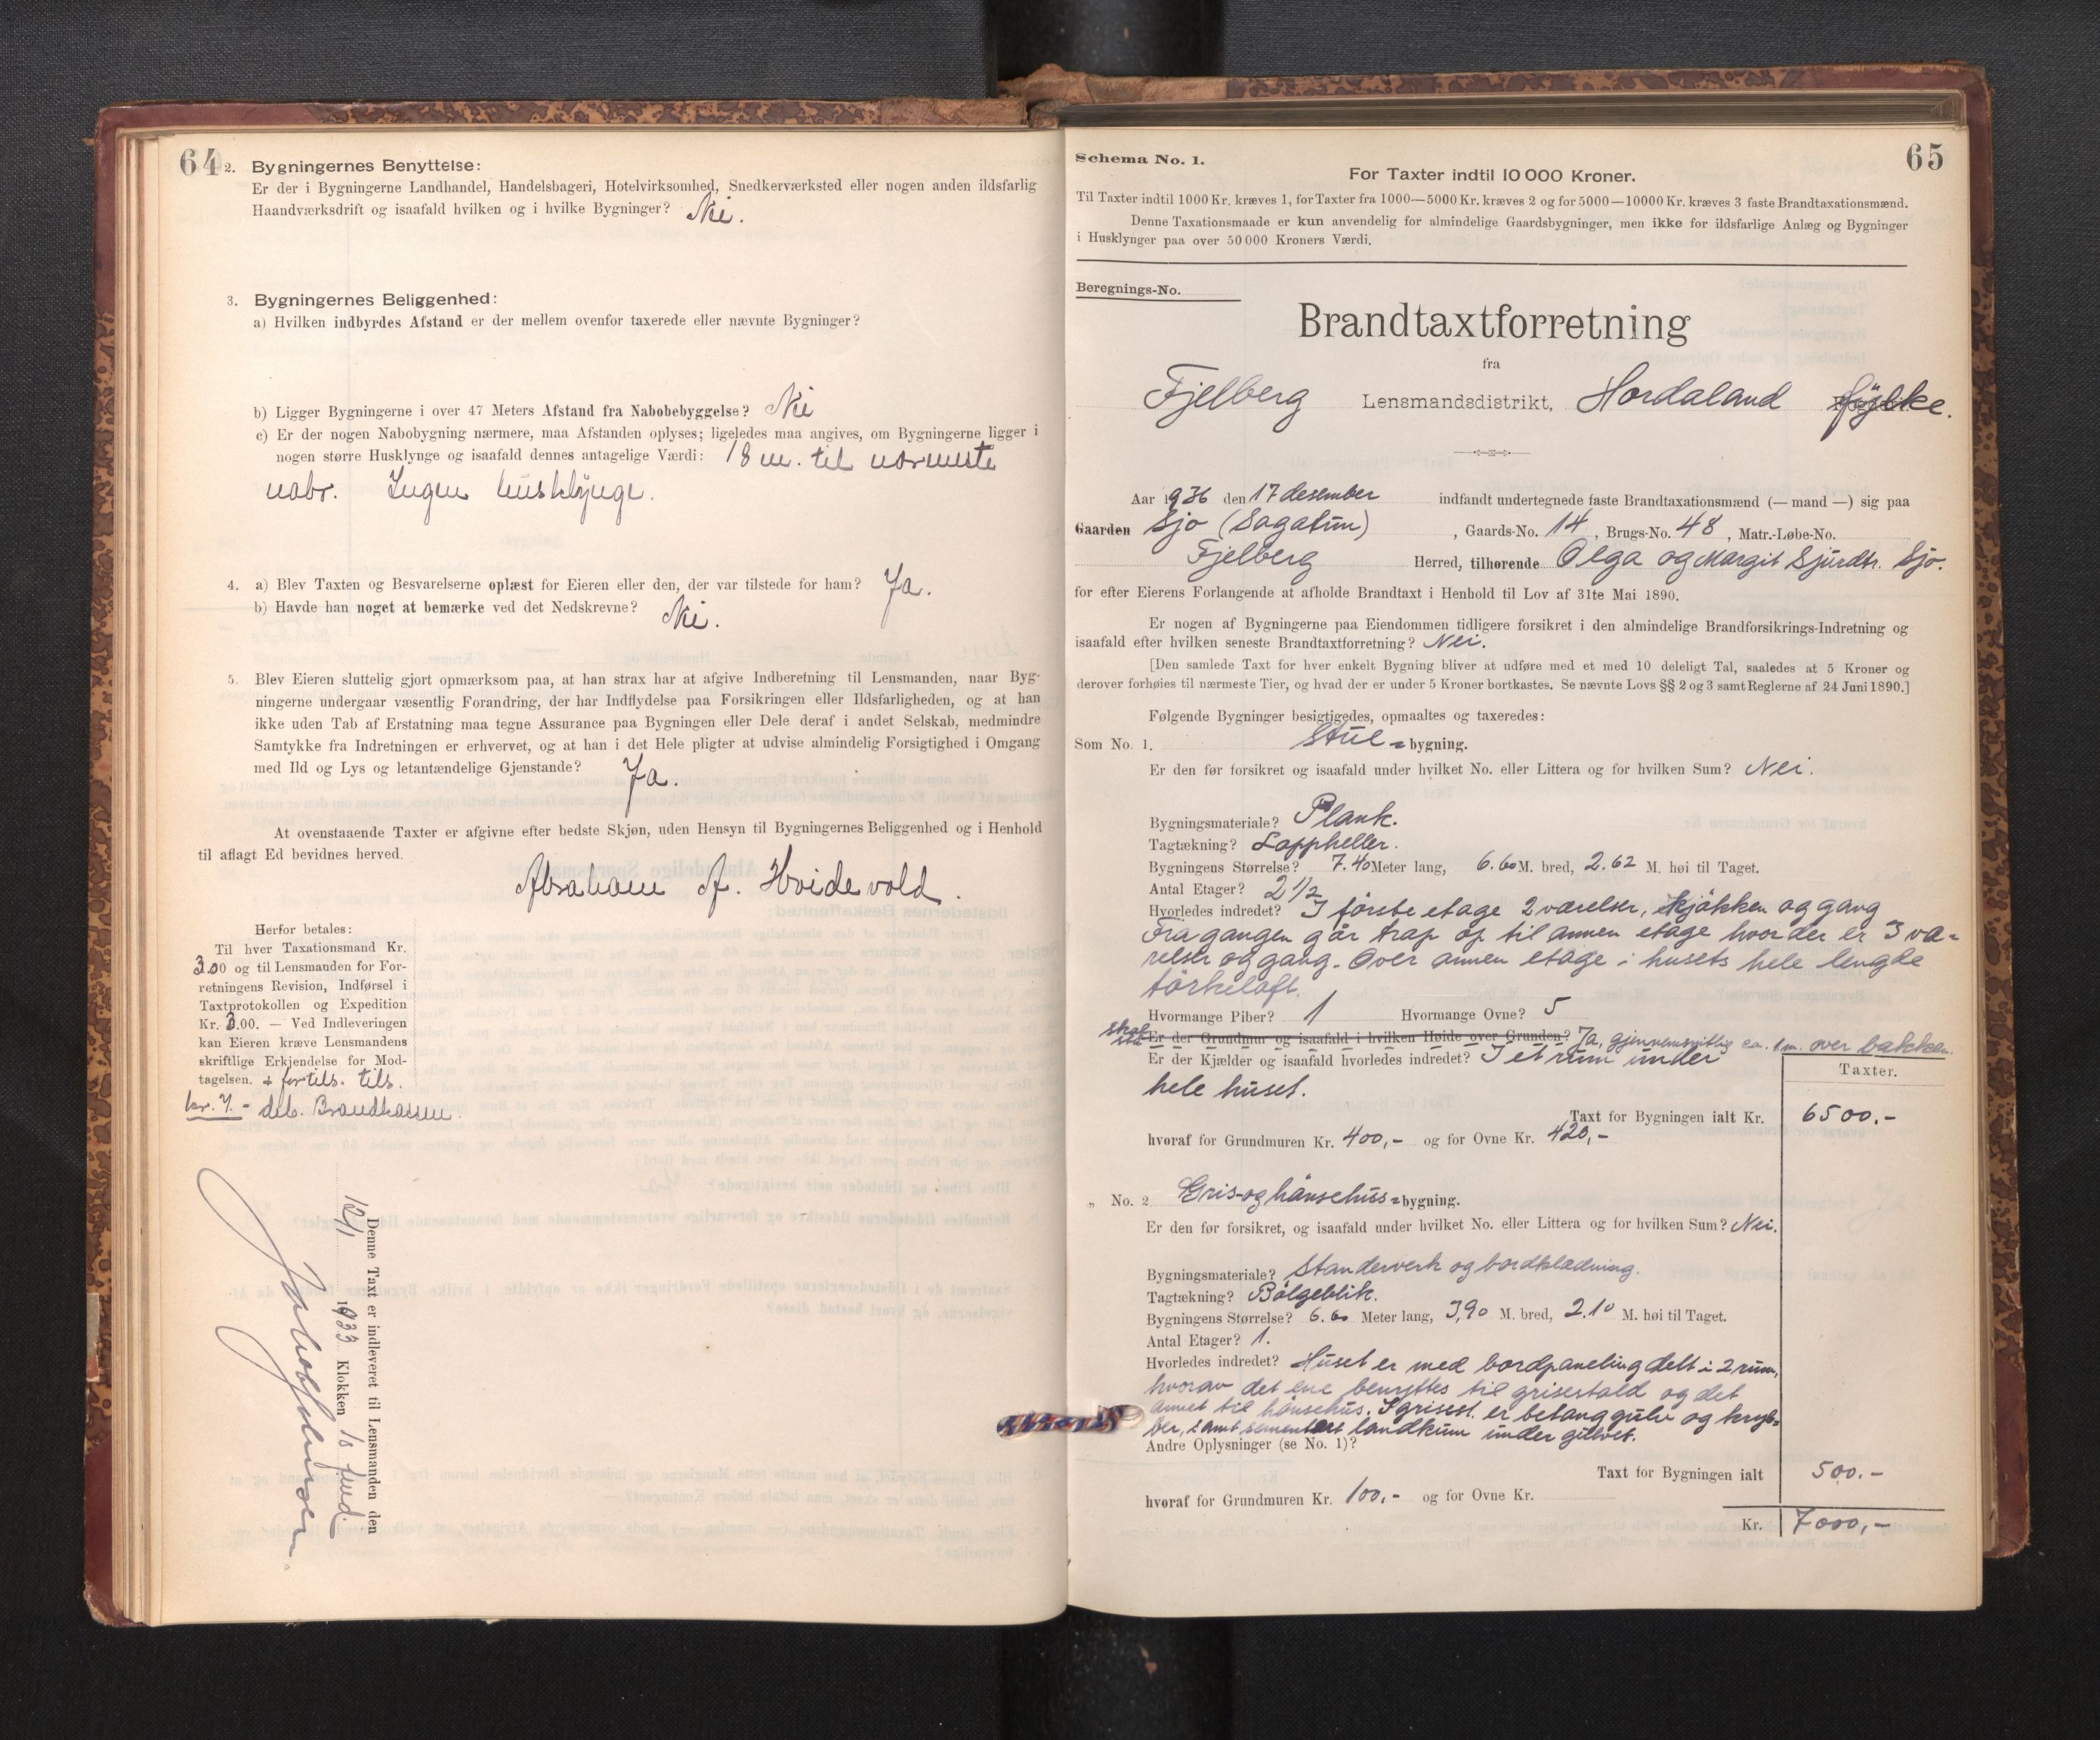 64
2. Bygningernes Benyttelse:
Er der i Bygningerne Landhandel, Handelsbageri, Hotelvirksomhed, Snedkerværksted eller nogen anden ildsfarlig
Haandværksdrift og isaafald hvilken og i hvilke Bygninger? Nei.
3. Bygningernes Beliggenhed:
a) Hvilken indbyrdes Afstand er der mellem ovenfor taxerede eller nævnte Bygninger?
b) Ligger Bygningerne i over 47 Meters Afstand fra Nabobebyggelse? Nei
c) Er der nogen Nabobygning nærmere, maa Afstanden oplyses; ligeledes maa angives, om Bygningerne ligger i
nogen større Husklynge og isaafald dennes antagelige Værdi: 18 m. til nærmeste
nabo. Ingen husklynge.
4. a) Blev Taxten og Besvarelserne oplæst for Eieren eller den, der var tilstede for ham? Ja.
b) Havde han noget at bemærke ved det Nedskrevne? Nei.
5. Blev Eieren sluttelig gjort opmærksom paa, at han strax har at afgive Indberetning til Lensmanden, naar Byg-
ningerne undergaar væsentlig Forandring, der har Indflydelse paa Forsikringen eller Ildsfarligheden, og at han
ikke uden Tab af Erstatning maa tegne Assurance paa Bygningen eller Dele deraf i andet Selskab, medmindre
Samtykke fra Indretningen er erhvervet, og at han i det Hele pligter at udvise almindelig Forsigtighed i Omgang
med Ild og Lys og letantændelige Gjenstande? Ja.
At ovenstaaende Taxter er afgivne efter bedste Skjøn, uden Hensyn til Bygningernes Beliggenhed og i Henhold
til aflagt Ed bevidnes herved.
Abraham A. Hvidevold.
Herfor betales:
Til hver Taxationsmand Kr.
3.00 og til Lensmanden for For-
retningens Revision, Indførsel i
Taxtprotokollen og Expedition
Kr. 3.00. — Ved Indleveringen
kan Eieren kræve Lensmandens
skriftlige Erkjendelse for Mod-
tagelsen. + fortils. tils.
kr. 7.- deb. Brandkassen.
Denne Taxt er indleveret til Lensmanden den
12/1 1933 Klokken 10 fmd.
65
Schema No. 1.
For Taxter indtil 10 000 Kroner.
Til Taxter indtil 1000 Kr. kræves 1, for Taxter fra 1000—5000 Kr. kræves 2 og for 5000—10000 Kr. kræves 3 faste Brandtaxationsmænd.
Denne Taxationsmaade er kun anvendelig for almindelige Gaardsbygninger, men ikke for ildsfarlige Anlæg og Bygninger
i Husklynger paa over 50 000 Kroners Værdi.
Beregnings-No.
Brandtaxtforretning
fra
Fjelberg Lensmandsdistrikt, Hordaland fylke.
Aar 1936 den 17 desember indfandt undertegnede faste Brandtaxationsmænd (— mand —) sig paa
Gaarden Sjo (Sagatun), Gaards-No. 14, Brugs-No. 48, Matr.-Løbe-No.
Fjelberg Herred, tilhørende Olga og Margit Sjurdtr. Sjo.
for efter Eierens Forlangende at afholde Brandtaxt i Henhold til Lov af 31te Mai 1890.
Er nogen af Bygningerne paa Eiendommen tidligere forsikret i den almindelige Brandforsikrings-Indretning og
isaafald efter hvilken seneste Brandtaxtforretning? Nei.
[Den samlede Taxt for hver enkelt Bygning bliver at udføre med et med 10 deleligt Tal, saaledes at 5 Kroner og
derover forhøies til nærmeste Tier, og hvad der er under 5 Kroner bortkastes. Se nævnte Lovs §§ 2 og 3 samt Reglerne af 24 Juni 1890.]
Følgende Bygninger besigtigedes, opmaaltes og taxeredes:
Som No. 1. Stue-bygning.
Er den før forsikret og isaafald under hvilket No. eller Littera og for hvilken Sum? Nei.
Bygningsmateriale? Plank.
Tagtækning? Lappheller.
Bygningens Størrelse? 7.40 Meter lang, 6.60 M. bred, 2.62 M. høi til Taget.
Antal Etager? 2 1/2
Hvorledes indredet? I første etage 2 værelser, kjøkken og gang
Fra gangen går trap op til annen etage hvor der er 3 væ-
relser og gang. Over annen etage i husets hele lengde
tørkeloft.
Hvormange Piber? 1 Hvormange Ovne? 5
Er der Grundmur og isaafald i hvilken Høide over Grunden? Ja, gjennemsnitlig ca. 1 m. over bakken.
Er der Kjælder og isaafald hvorledes indredet? I et rum under
hele huset.
Taxter.
Taxt for Bygningen ialt Kr. 6500,-
hvoraf for Grundmuren Kr. 400,- og for Ovne Kr. 420,-
„ No. 2 Gris- og hønsehus-bygning.
Er den før forsikret, og isaafald under hvilket No. eller Littera og for hvilken Sum? Nei.
Bygningsmateriale? Standerverk og bordklædning.
Tagtækning? Bølgeblik.
Bygningens Størrelse? 6.60 Meter lang, 3,90 M. bred, 2.10 M. høi til Taget.
Antal Etager? 1.
Hvorledes indredet? Huset er med bordpaneling delt i 2 rum,
hvorav det ene benyttes til grisestald og det
annet til hønsehus. I grisest. er betonggulv og kryb-
ber, samt sementert landkum under gulvet.
Andre Oplysninger (se No. 1)?
Taxt for Bygningen ialt 500.-
hvoraf for Grundmuren Kr. 100,- og for Ovne Kr.
Kr. 7000,-